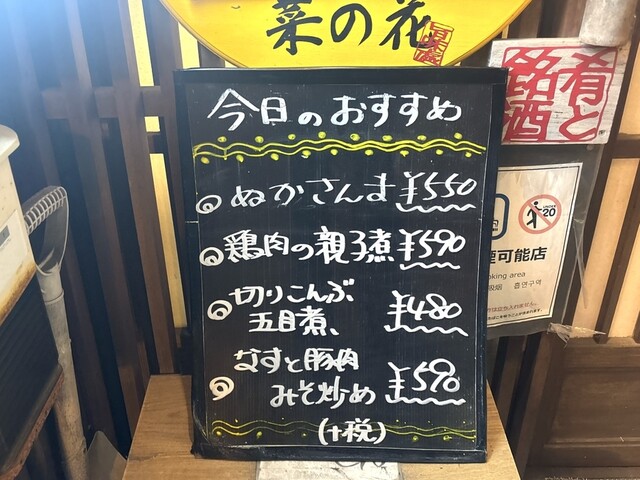 菜の花
今日のおすすめ
ぬかさんま ¥550
鶏肉の親子煮 ¥590
切りこんぶ
五目煮、 ¥480
なすと豚肉
みそ炒め ¥590
(+税)
肴と
銘酒
UNDER 20
可能店
king area
吸烟 흡연구역